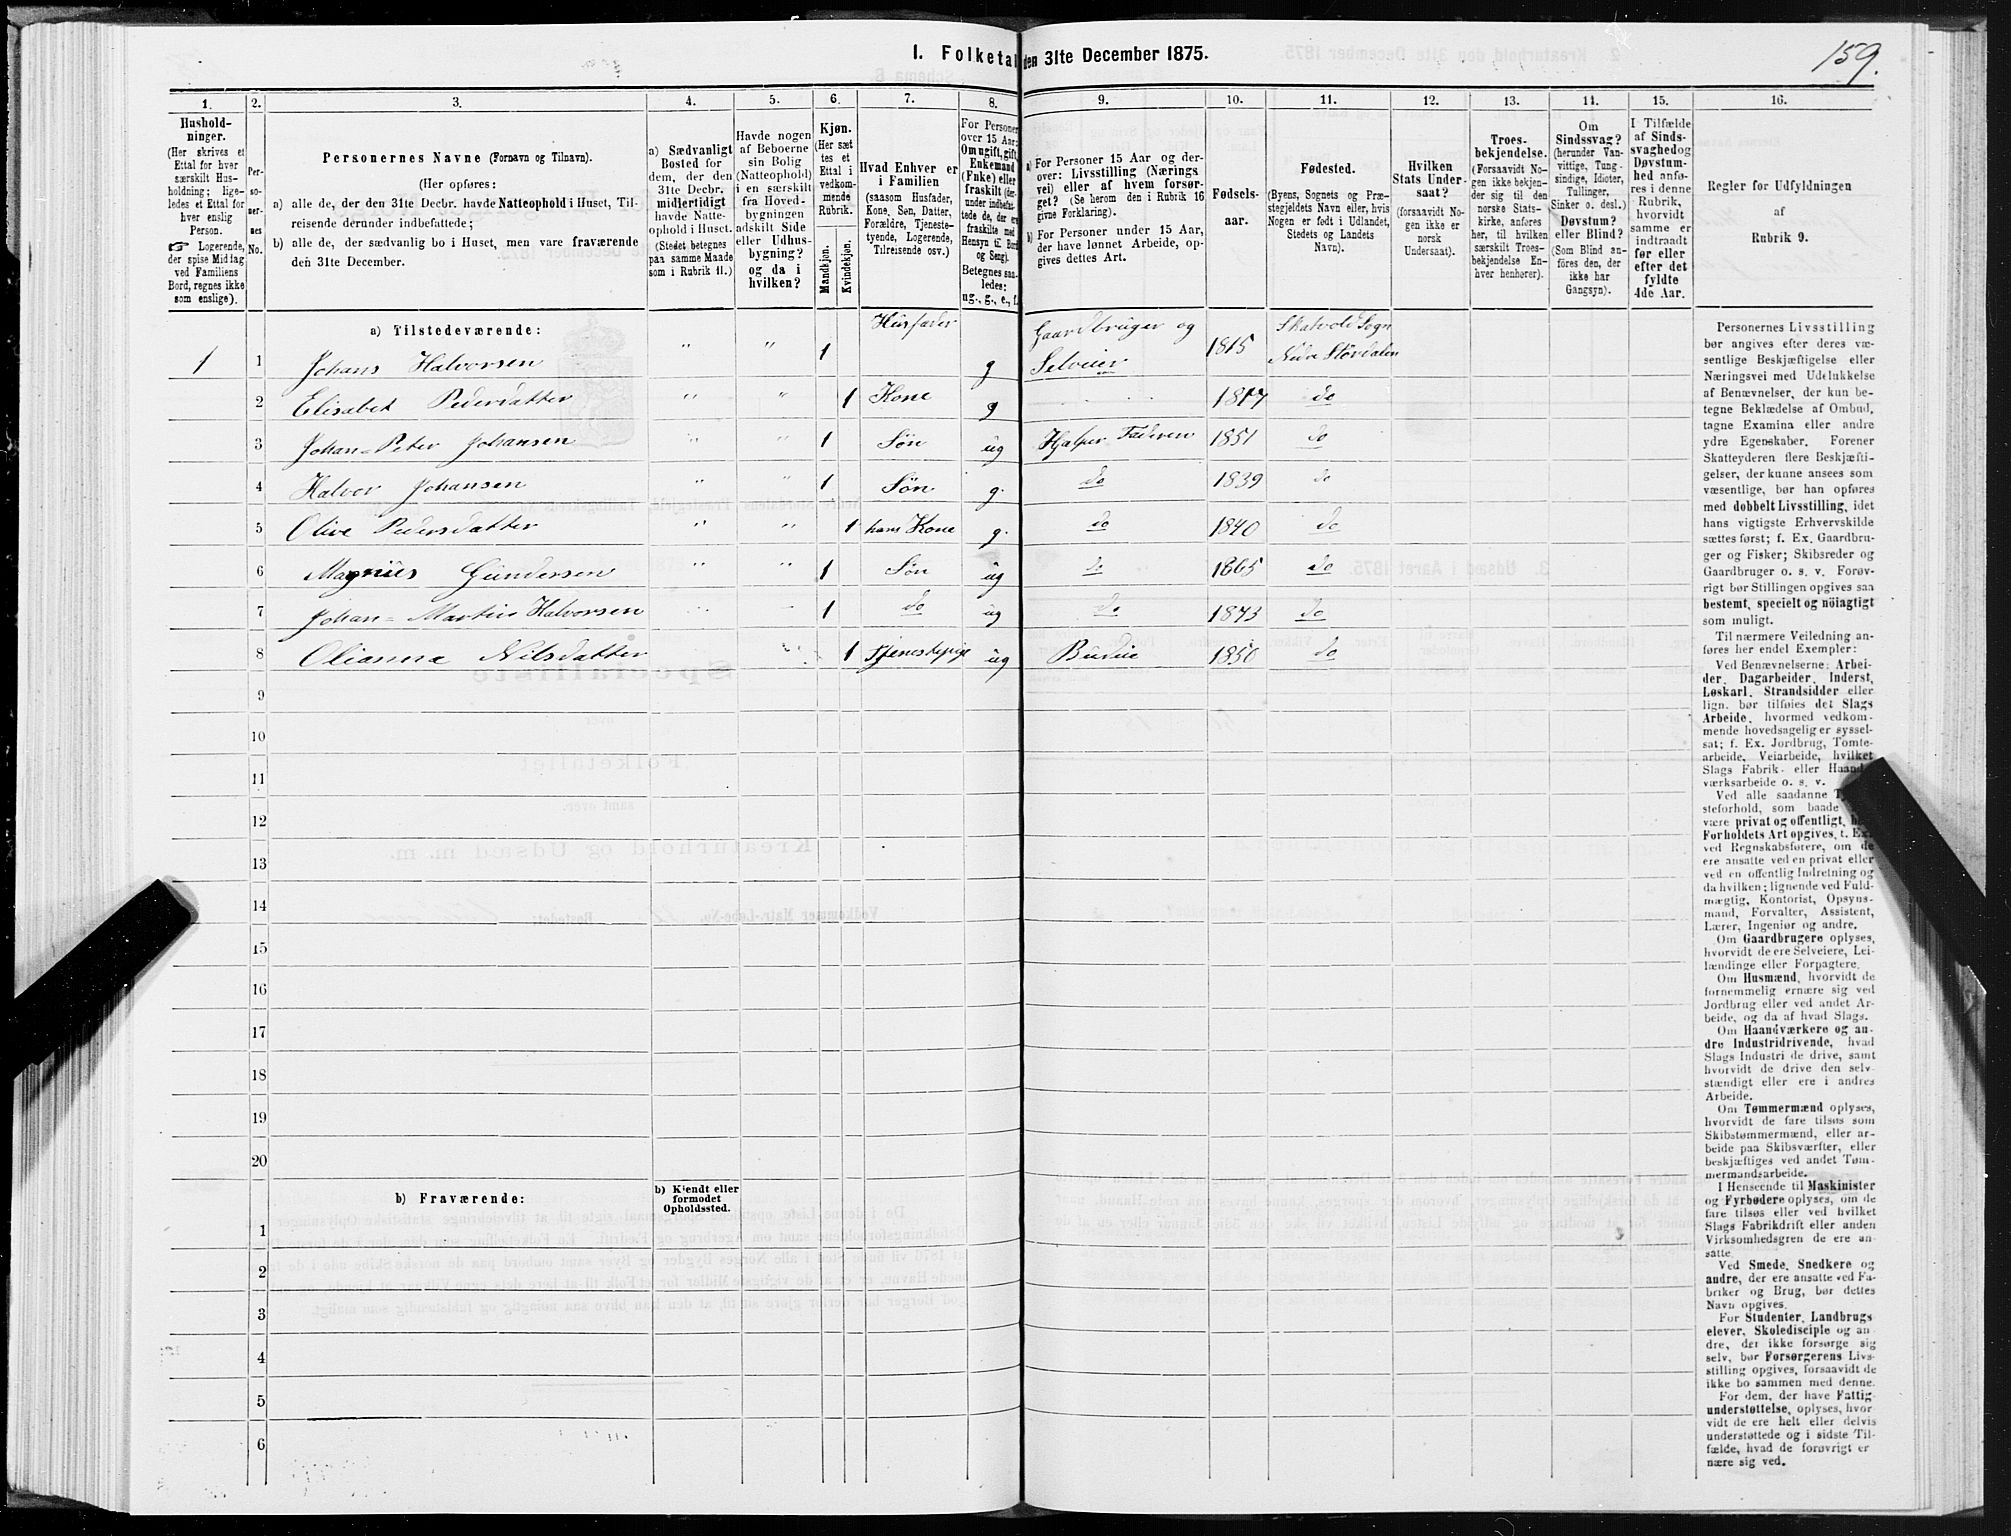 159.
I. Folketal den 31te December 1875.
1. 2. 3. 4. 5. 6. 7. 8. 9. 10. 11. 12. 13. 14. 15. 16.
Hushold-
ninger.
(Her skrives et
Ettal for hver
særskilt Hus-
holdning; lige-
ledes et Ettal for
hver enslig
Person.
☞ Logerende,
der spise Middag
ved Familiens
Bord, regnes ikke
som enslige).
Per-
so-
ner-
nes
No.
Personernes Navne (Fornavn og Tilnavn).
(Her opføres:
a) alle de, der den 31te Decbr. havde Natteophold i Huset, Til-
reisende derunder indbefattede;
b) alle de, der sædvanlig bo i Huset, men vare fraværende
den 31te December.
a) Sædvanligt
Bosted for
dem, der den
31te Decbr.
midlertidigt
havde Natte-
ophold i Huset.
(Stedet betegnes
paa samme Maade
som i Rubrik 11.)
Havde nogen
af Beboerne
sin Bolig
(Natteophold)
i en særskilt
fra Hoved-
bygningen
adskilt Side
eller Udhus-
bygning?
og da i
hvilken?
Kjøn.
(Her sæt
tes et
Ettal i
vedkom-
mende
Rubrik.
Mandkjøn.
Kvindekjøn.
Hvad Enhver er
i Familien
(saasom Husfader,
Kone, Søn, Datter,
Forældre, Tjeneste-
tyende, Logerende,
Tilreisende osv.)
For Personer
over 15 Aar:
Om ugift, gift,
Enkemand
(Enke) eller
fraskilt (der-
under indbefat-
tede de, der ere
fraskilte med
Hensyn til Bord
og Seng).
Betegnes saa-
ledes:
ug., g., e., f.
a) For Personer 15 Aar og der-
over: Livsstilling (Nærings
vei) eller af hvem forsør-
get? (Se herom den i Rubrik 16
givne Forklaring).
b) For Personer under 15 Aar,
der have lønnet Arbeide, op-
gives dettes Art.
Fødsels-
aar.
Fødested.
(Byens, Sognets og Præ-
stegjeldets Navn eller, hvis
Nogen er født i Udlandet,
Stedets og Landets
Navn).
Hvilken
Stats Under-
saat?
(forsaavidt No-
gen ikke er
norsk
Undersaat).
Troes-
bekjendelse.
(Forsaavidt No-
gen ikke bekjen-
der sig til den
norske Stats-
kirke, anføres
her, til hvilken
særskilt Troes-
bekjendelse En-
hver henhører).
Om
Sindssvag?
(herunder Van-
vittige, Tung-
sindige, Idioter,
Tullinger,
Sinker o. desl.)
Døvstum?
eller Blind?
(Som Blind an-
føres den, der
ikke har
Gangsyn).
I Tilfælde
af Sinds-
svaghed og
Døvstum-
hed anfø-
res i denne
Rubrik,
hvorvidt
samme er
indtraadt
før eller
efter det
fyldte
4de Aar.
Regler for Udfyldningen
af
Rubrik 9.
a) Tilstedeværende:
1 1 Johans Halvorsen " " 1 Husfader g Gaardbruger og Selveier 1815 Skatvold Sogn Nedre Stördalen
2 Elisabet Pedersdatter " " 1 Kone g 1817 do
3 Johan=Peter Johansen " " 1 Søn ug Hjelper Faderen 1851 do
4 Halvor Johansen " " 1 Søn g. do 1839 do
5 Olive Pedersdatter " " 1 hans Kone g. do 1840 do
6 Magnus Gundersen " " 1 Søn ug do 1865 do
7 Johan=Martin Halvorsen 1 do ug do 1873 do
8 Olianna Nilsdatter " 1 Tjenestepige ug Budeie 1850 do
9
10
11
12
13
14
15
16
17
18
19
20
b) Fraværende:
b) Kjendt eller
formodet
Opholdssted.
1
2
3
4
5
6
Personernes Livsstilling
bør angives efter deres væ-
sentlige Beskjæftigelse eller
Næringsvei med Udelukkelse
af Benævnelser, der kun be-
tegne Beklædelse af Ombud,
tagne Examina eller andre
ydre Egenskaber. Forener
Skatteyderen flere Beskjæfti-
gelser, der kunne ansees som
væsentlige, bør han opføres
med dobbelt Livsstilling, idet
hans vigtigste Erhvervskilde
sættes først; f. Ex. Gaardbru-
ger og Fisker; Skibsreder og
Gaardbruger o. s. v. Forøv-
rigt bør Stillingen opgives saa
bestemt, specielt og nöiagtigt
som muligt.
Til nærmere Veiledning an-
føres her endel Exempler:
Ved Benævnelserne: Arbei-
der, Dagarbeider, Inderst,
Løskarl, Strandsidder eller
lign. bør tilføies det Slags
Arbeide, hvormed vedkom-
mende hovedsagelig er syssel-
sat; f. Ex. Jordbrug, Tomte-
arbeide, Veiarbeide, hvilket
Slags Fabrik- eller Haand-
værksarbeide o. s. v.
Ved alle saadanne
steforhold, som baade
være privat og offentligt,
Forholdets Art opgives, t. Ex.
ved Regnskabsførere, om de
ere ansatte ved en privat eller
ved en offentlig Indretning og
da hvilken; lignende ved Fuld-
mægtig, Kontorist, Opsyns-
mand, Forvalter, Assistent,
Lærer, Ingeniør og andre.
Om Gaardbrugere oplyses,
hvorvidt de ere Selveiere, Lei-
lændinge eller Forpagtere.
Om Husmænd, hvorvidt de
fornemmelig ernære sig ved
Jordbrug eller ved andet Ar-
beide, og da af hvad Slags.
Om Haandværkere og an-
dre Industridrivende, hvad
Slags Industri de drive, samt
hvorvidt de drive den selv-
stændigt eller ere i andres
Arbeide.
Om Tømmermænd oplyses,
hvorvidt de fare tilsøs som
Skibstømmermænd, eller ar-
beide paa Skibsværfter, eller
beskjæftiges ved andet Tøm-
mermandsarbeide.
I Henseende til Maskinister
og Fyrbødere oplyses, om de
fare tilsøs eller ved hvilket
Slags Fabrikdrift eller anden
Virksomhedsgren de ere an-
satte.
Ved Smede, Snedkere og
andre, der ere ansatte ved Fa-
briker og Brug, bør dettes
Navn opgives.
For Studenter, Landbrugs
elever, Skoledisciple og an-
dre, der ikke forsørge sig
selv, bør Forsørgerens Livs-
stilling opgives, forsaavidt de
ikke bo sammen med denne.
For dem, der have Fattig-
understøttelse, oplyses, hvor-
vidt de ere helt eller delvis
understøttede og i sidste Til-
fælde, hvad de forøvrigt er
nære sig ved.